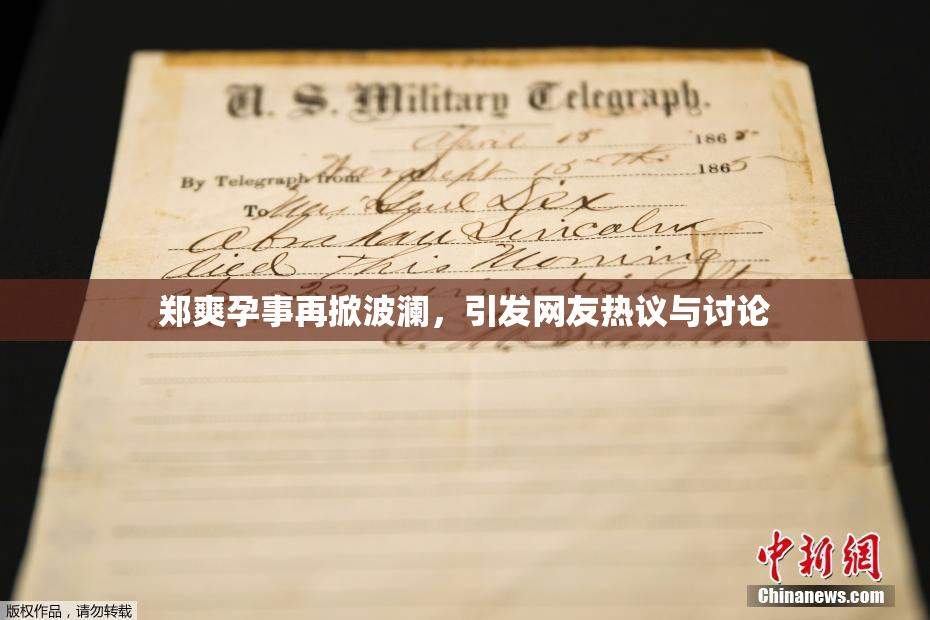 U. S. Military Telegraph.
April 15 1865
By Telegraph from War Dept 15th 1865
To Maj Genl Dix
Abraham Lincoln
died This Morning
at 22 minutes after
郑爽孕事再掀波澜，引发网友热议与讨论
E. M. Stanton
中新網
Chinanews.com
版权作品，请勿转载